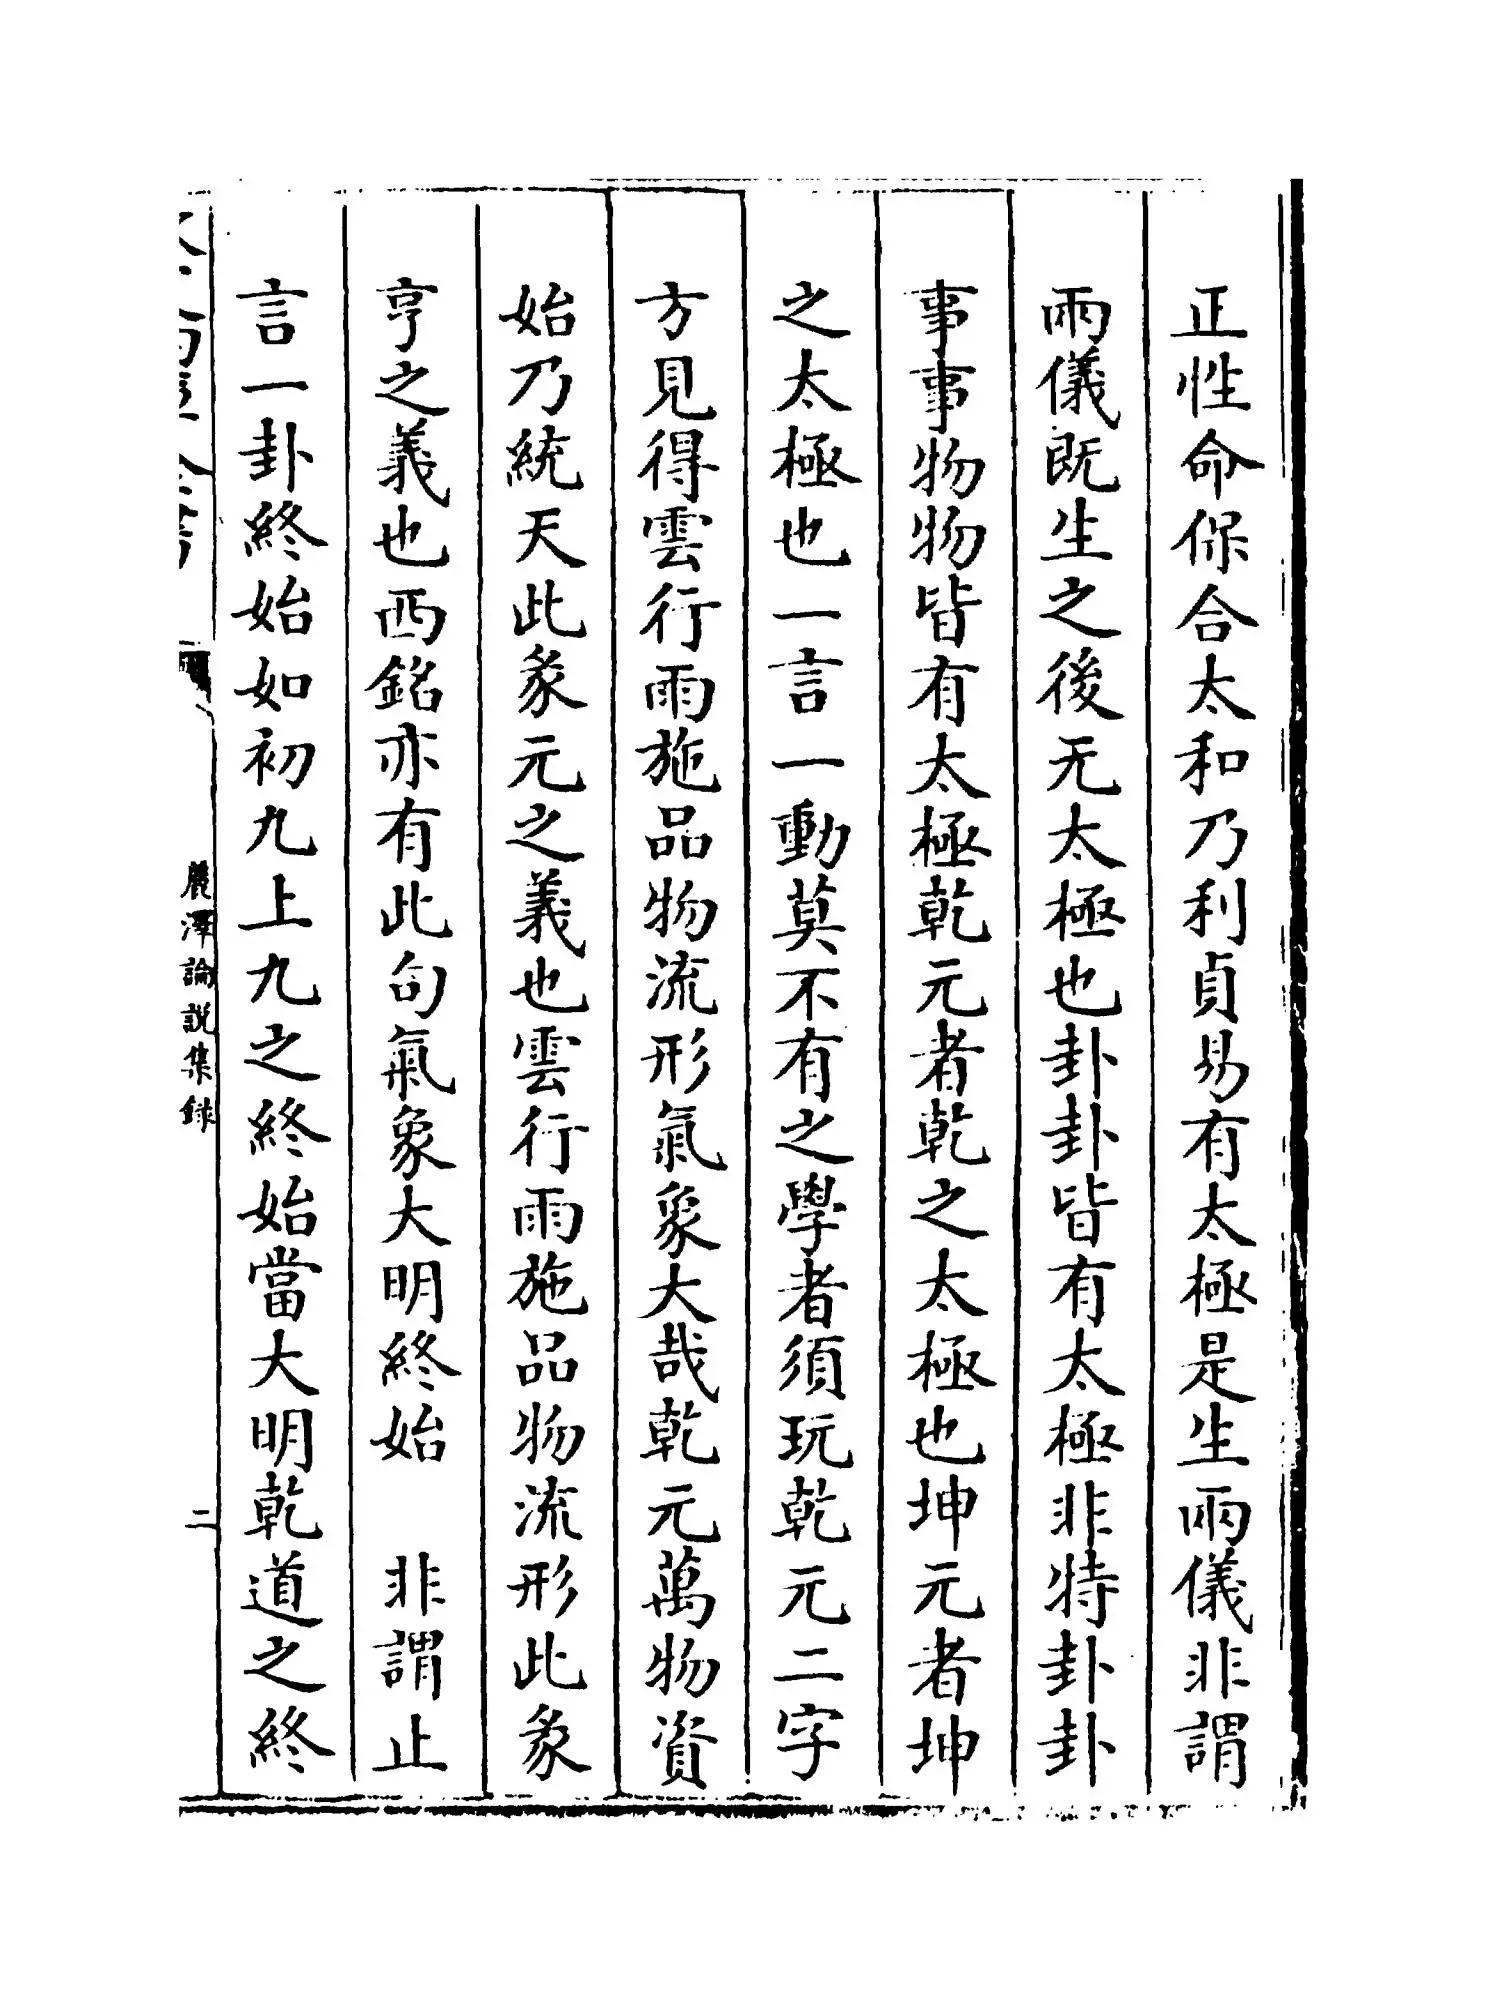 正性命保合太和乃利貞易有太極是生兩儀非謂
兩儀既生之後无太極也卦卦皆有太極非特卦卦
事事物物皆有太極乾元者乾之太極也坤元者坤
之太極也一言一動莫不有之學者須玩乾元二字
方見得雲行雨施品物流形氣象大哉乾元萬物資
始乃統天此彖元之義也雲行雨施品物流形此彖
亨之義也西銘亦有此句氣象大明終始　非謂止
言一卦終始如初九上九之終始當大明乾道之終
麗澤論說集録
二